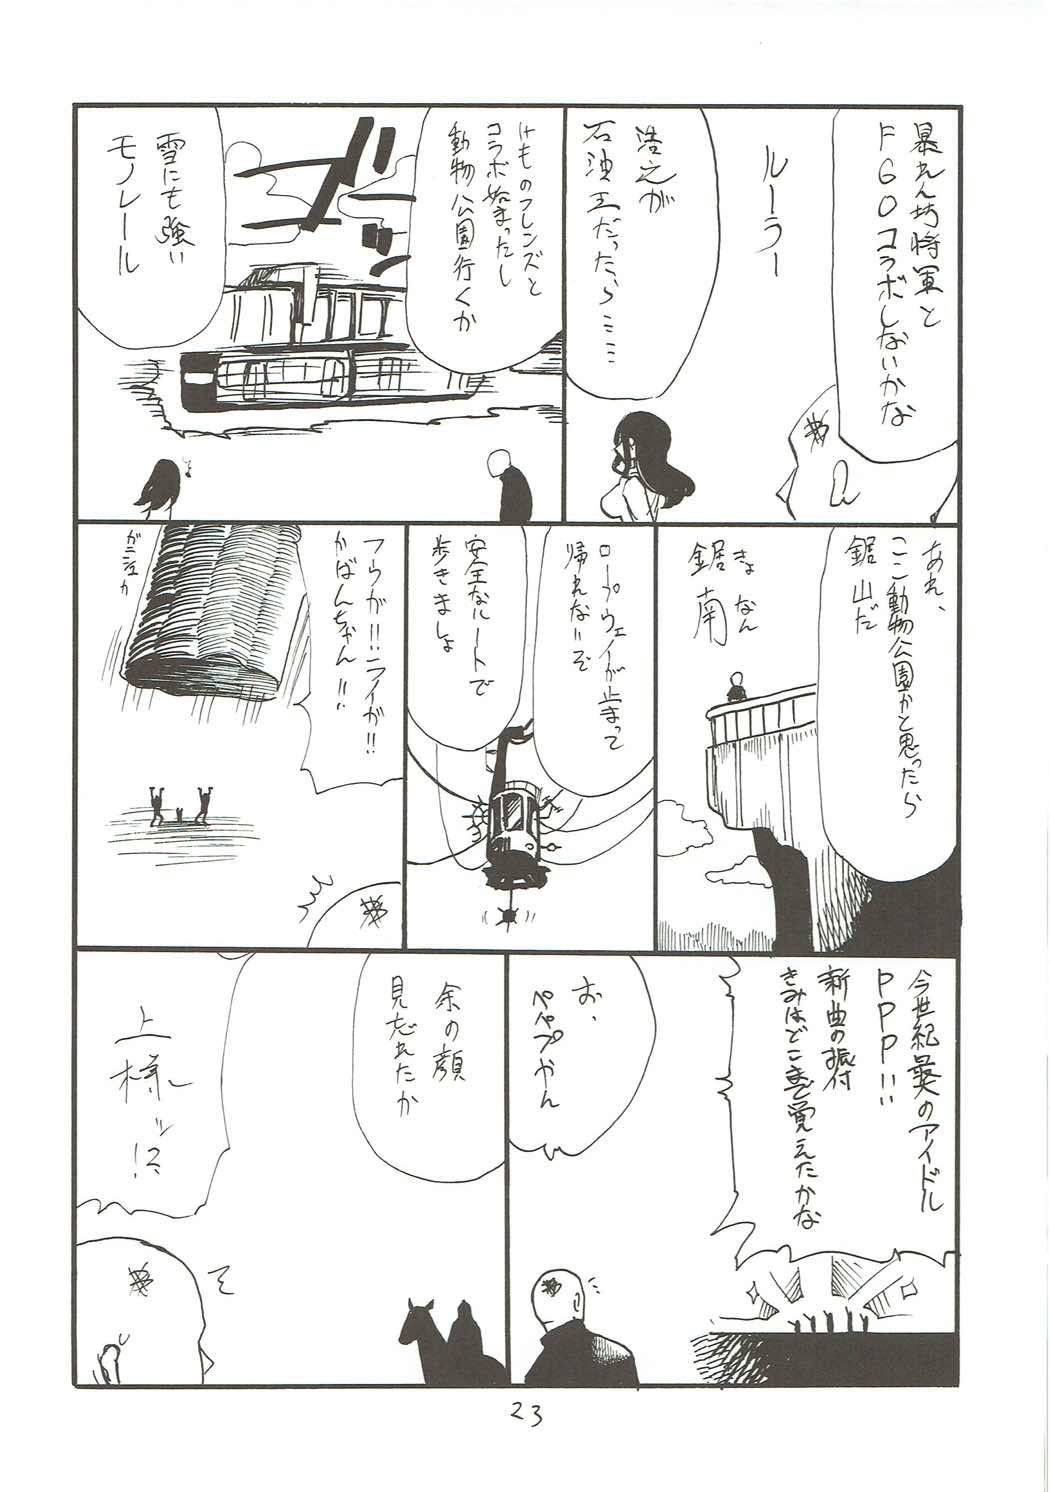 暴れん坊将軍と
FGOコラボしないかな
ルーラー
浩之が
石油王だったら……
けものフレンズと
コラボ始まったし
動物公園行くか
ドドン
雪にも強い
モノレール
あれ、
ここ動物公園かと思ったら
鋸山だ
きょなん
鋸南
ロープウェイが止まって
帰れないぞ
安全なルートで
歩きましょ
フウが!!ライが!!
かばんちゃん!!
今世紀最大のアイドル
PPP!!
新曲の振付
きみはどこまで覚えたかな
お、
ペペプやん
余の顔
見忘れたか
上様ッ!?
23